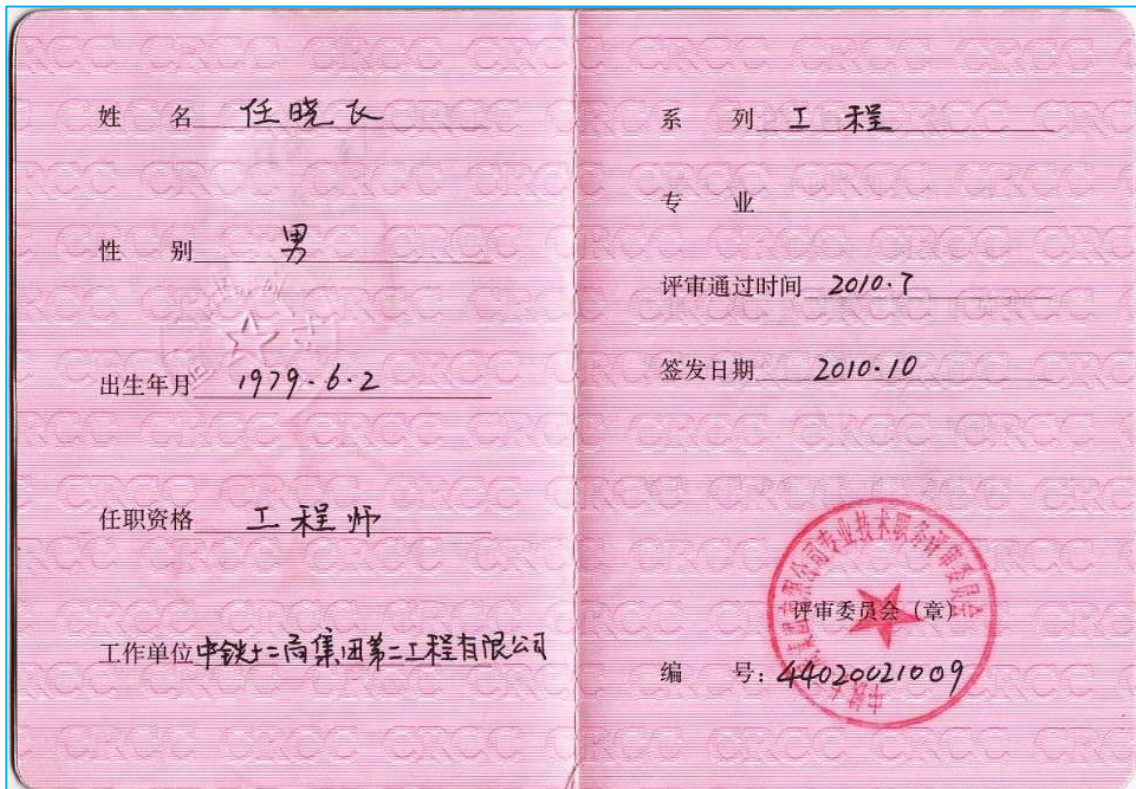 姓 名 任晓衣
性 别 男
出生年月 1979.6.2
任职资格 工程师
工作单位 中铁十二局集团第二工程有限公司
系 列 工 程
专 业
评审通过时间 2010.7
签发日期 2010.10
评审委员会（章）
编 号：44020021009
中铁十二局集团有限公司专业技术职务评审委员会
CRCC